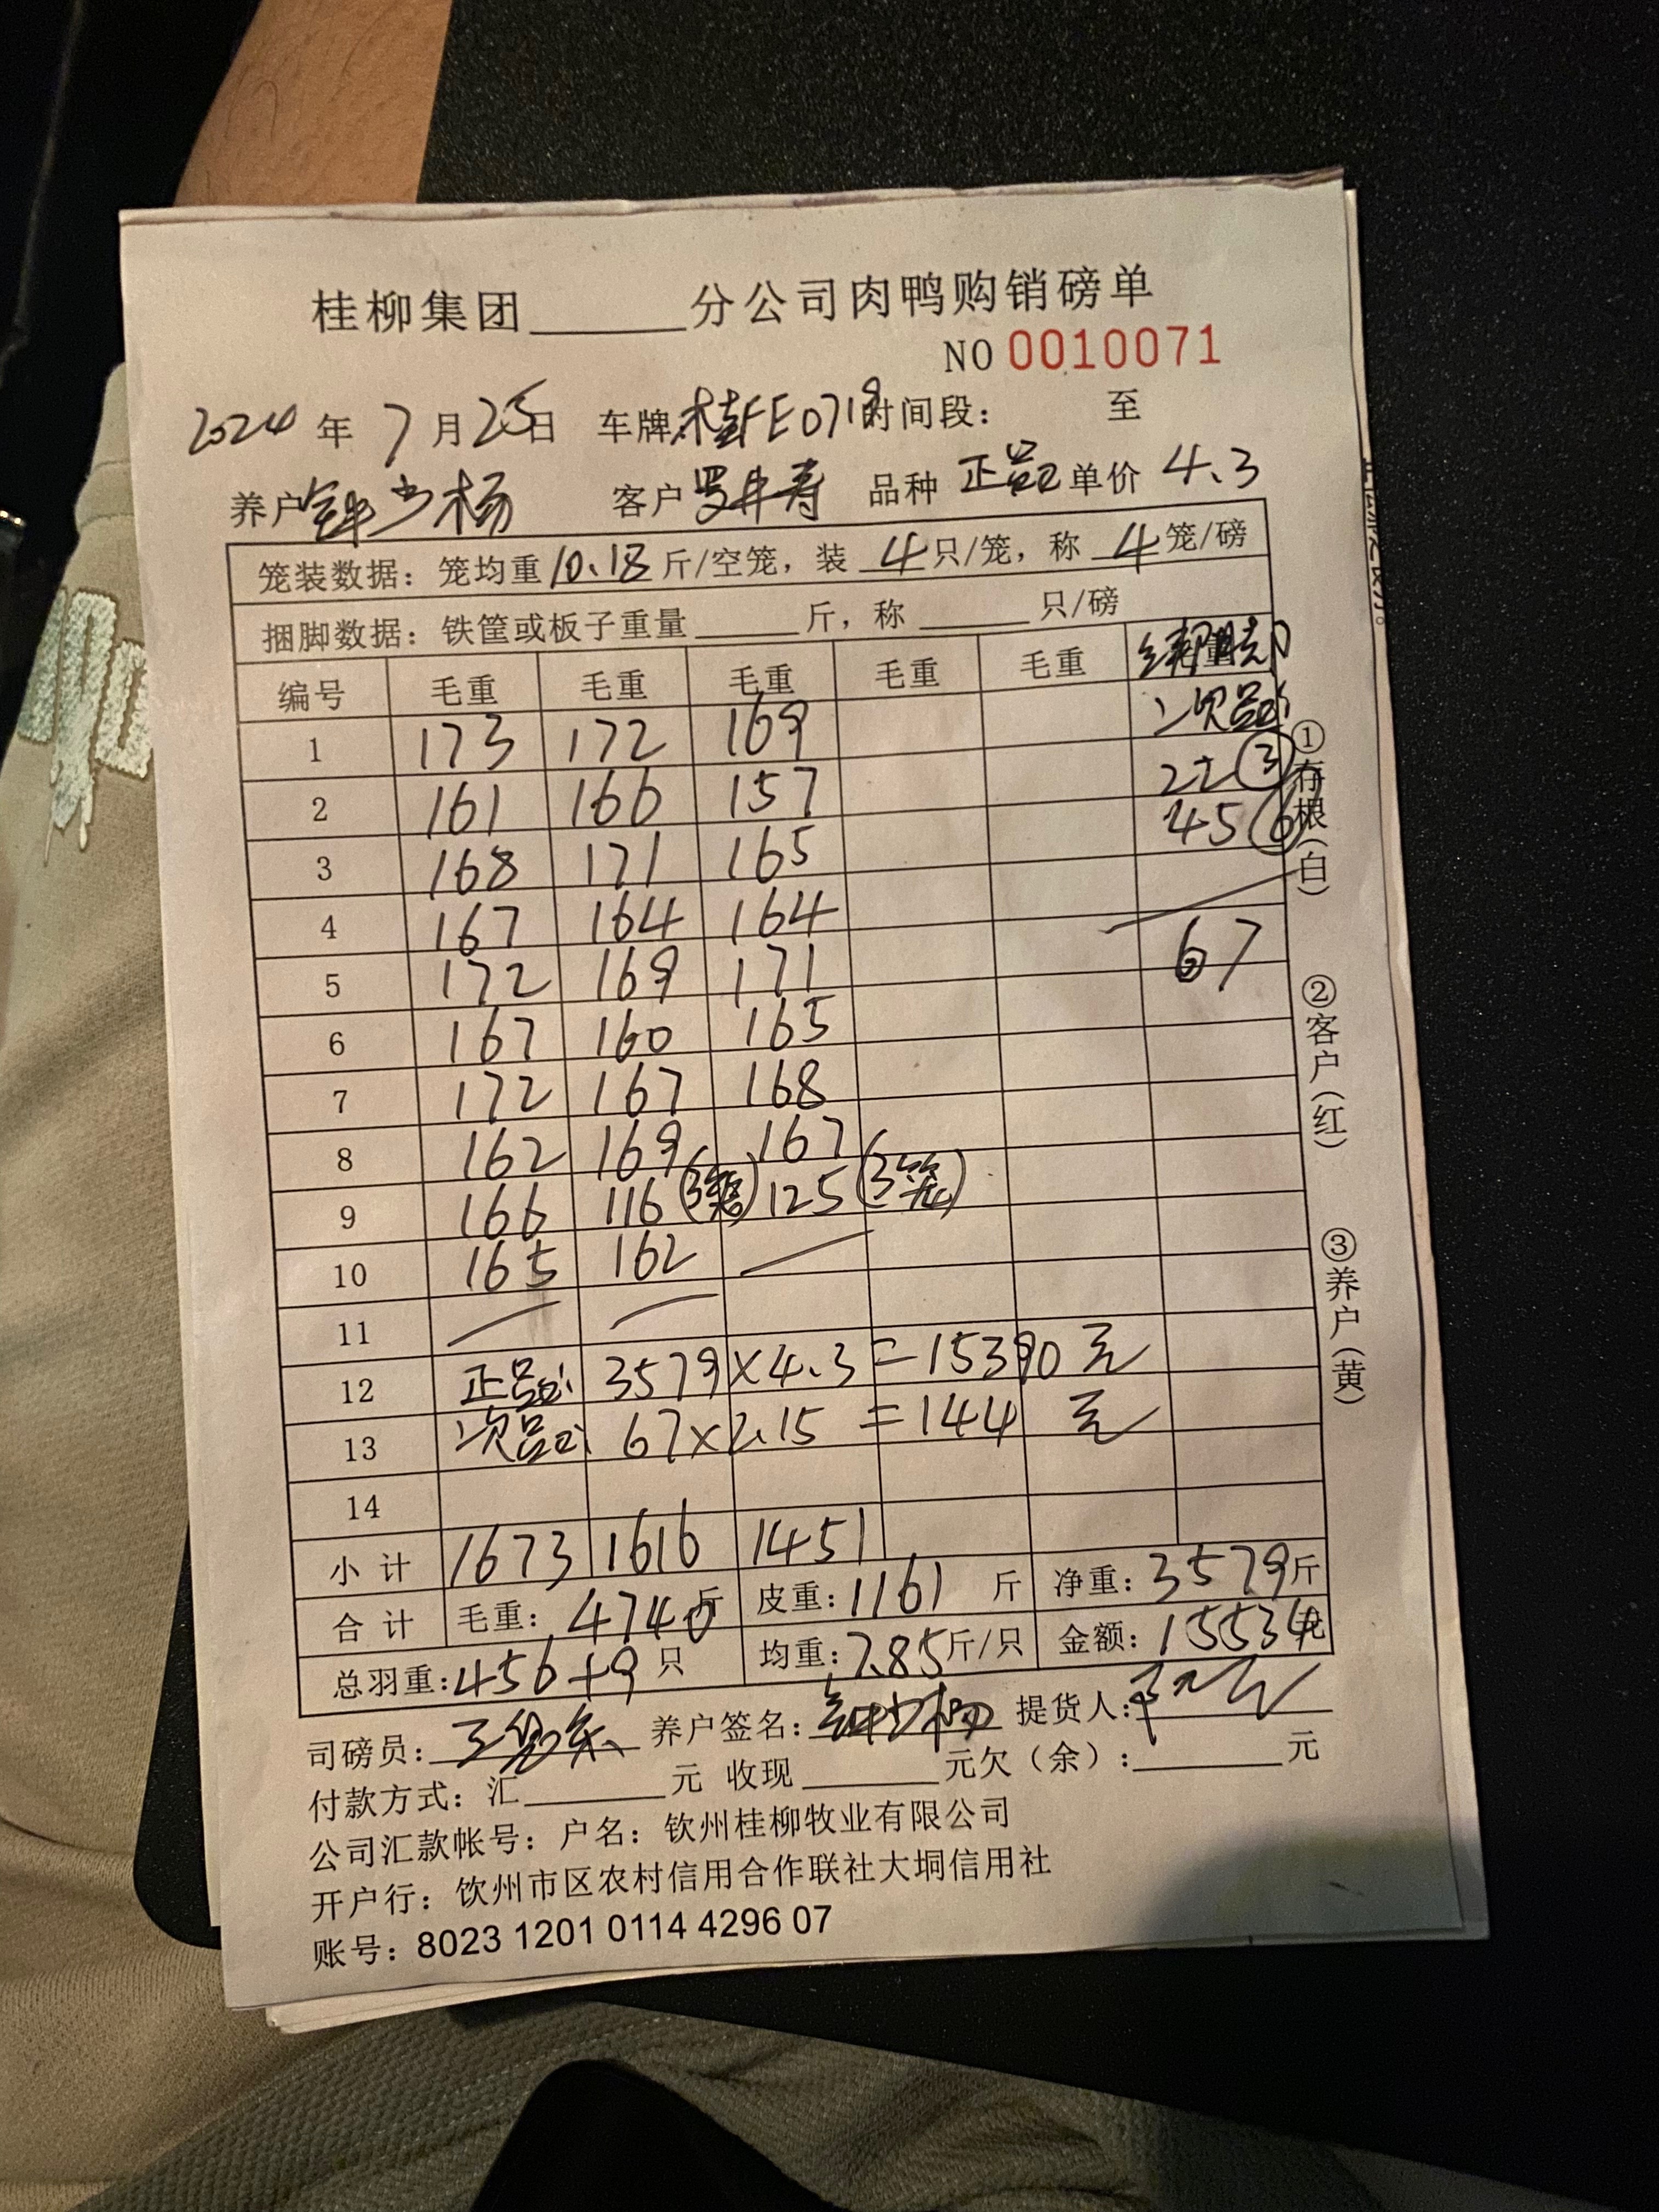 桂柳集团______分公司肉鸭购销磅单
NO 0010071
2024 年 7 月 25 日 车牌 桂FE0719 时间段: 至
养户 钟少杨 客户 品种 正品 单价 4.3
笼装数据: 笼均重 10.18 斤/空笼, 装 4 只/笼, 称 4 笼/磅
捆脚数据: 铁筐或板子重量______斤, 称______只/磅
编号 毛重 毛重 毛重 毛重 毛重 绑脚
次品:
1 173 172 169
2 161 166 157 22 ③
3 168 171 165 45 ⑥
4 167 164 164
5 172 169 171 67
6 167 160 165
7 172 167 168
8 162 169 167
9 166 116 (3笼) 125 (3笼)
10 165 162
11
12 正品: 3579 × 4.3 = 15390 元
13 次品: 67 × 2.15 = 144 元
14
小 计 1673 1616 1451
合 计 毛重: 4740 斤 皮重: 1161 斤 净重: 3579 斤
总羽重: 456+9 只 均重: 7.85 斤/只 金额: 15534 元
司磅员: 养户签名: 钟少杨 提货人:
付款方式: 汇______元 收现______元欠(余):______元
公司汇款帐号: 户名: 钦州桂柳牧业有限公司
开户行: 钦州市区农村信用合作联社大垌信用社
账号: 8023 1201 0114 4296 07
①存根(白)
②客户(红)
③养户(黄)